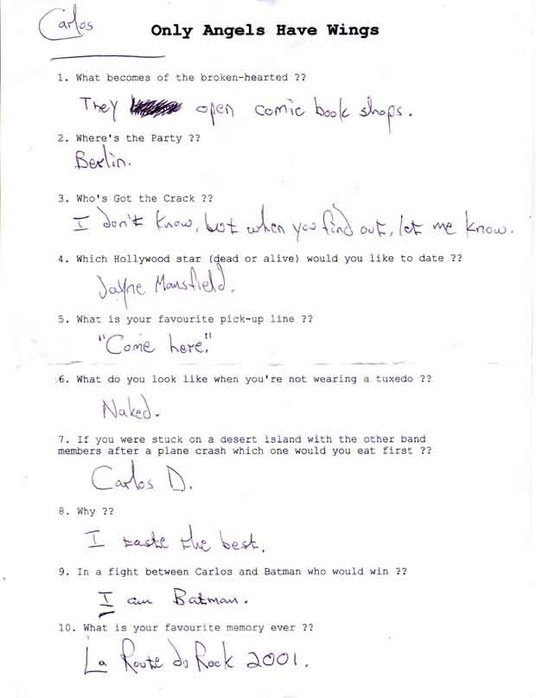 Carlos
Only Angels Have Wings
1. What becomes of the broken-hearted ??
They open comic book shops.
2. Where's the Party ??
Berlin.
3. Who's Got the Crack ??
I don't know, but when you find out, let me know.
4. Which Hollywood star (dead or alive) would you like to date ??
Jayne Mansfield.
5. What is your favourite pick-up line ??
"Come here."
6. What do you look like when you're not wearing a tuxedo ??
Naked.
7. If you were stuck on a desert island with the other band
members after a plane crash which one would you eat first ??
Carlos D.
8. Why ??
I taste the best.
9. In a fight between Carlos and Batman who would win ??
I am Batman.
10. What is your favourite memory ever ??
La Route du Rock 2001.